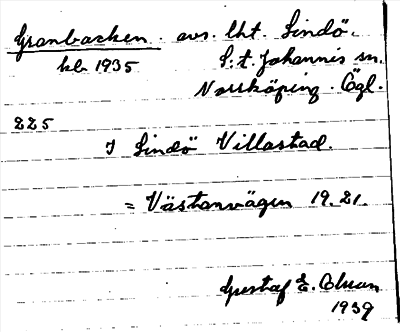 Granbacken. avs. lht. Lindö.
kb 1935 S:t. Johannis sn.
Norrköping. Ögl.
225
I Lindö Villastad.
= Västanvägen 19.21.
Gustaf E.
1939